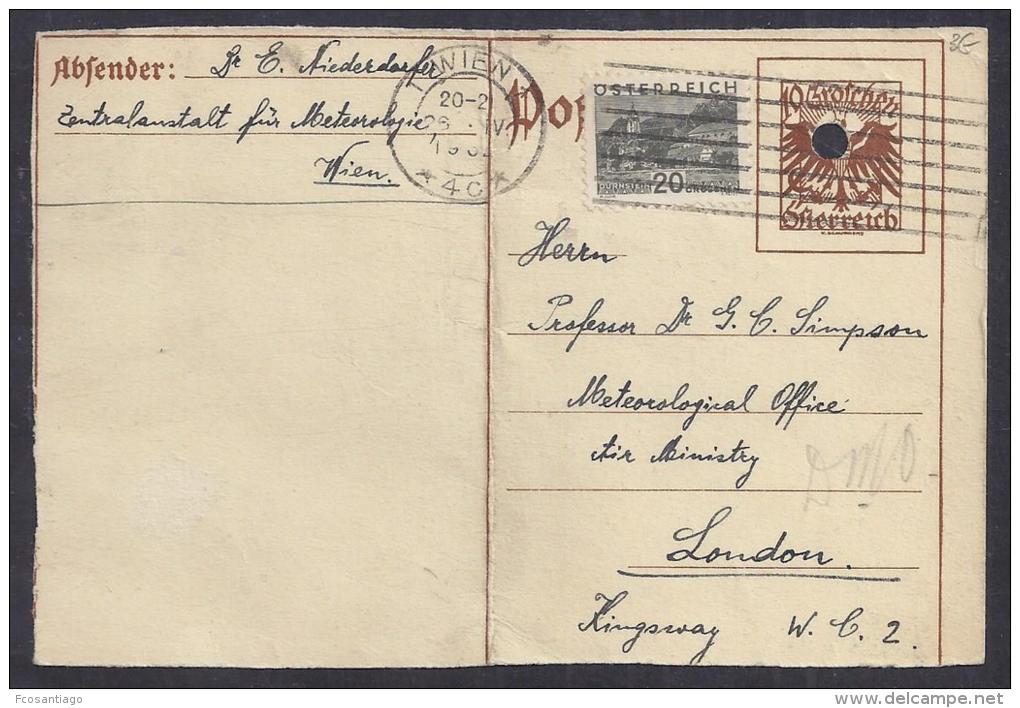 Absender: Dr E. Niederdorfer
Zentralanstalt für Meteorologie
Wien.
WIEN
20-2
40
ÖSTERREICH
DÜRNSTEIN
20 GROSCHEN
10 Groschen
Österreich
3€
Herrn
Professor Dr G. C. Simpson
Meteorological Office
Air Ministry
DMO
London.
Kingsway W. C. 2.
Fcosantiago
www.delcampe.net